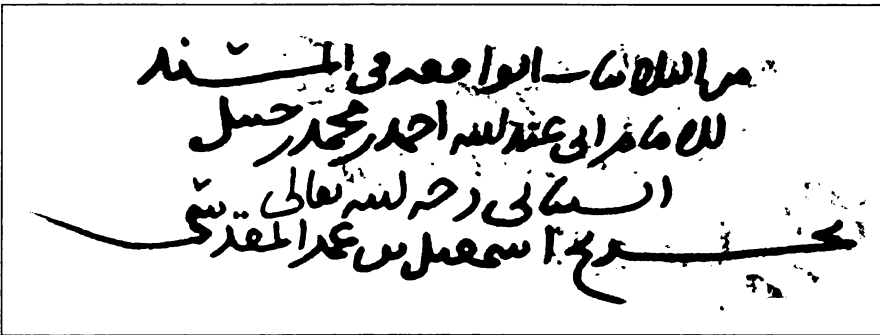 من الثلاثيات الواقعة في المسند
للامام ابي عبد الله احمد بن محمد بن حنبل
الشيباني رحمه الله تعالى
تخريج اسمعيل بن عمر المقدسي